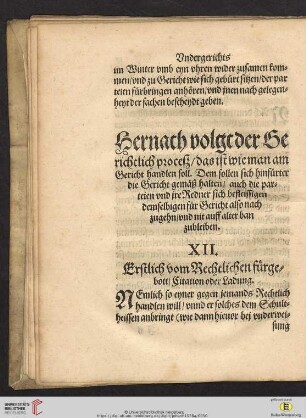 Vndergerichts
im Winter vmb eyn vhren wider zusamen kom-
men/vnd zu Gericht wie sich gebürt sitzen/der par
teien fürbringen anhören/vnd jnen nach gelegen-
heyt der sachen bescheydt geben.
Hernach volgt der Ge
richtlich proceß/das ist wie man am
Gericht handlen soll. Dem sollen sich hinfürter
die Gericht gemäß halten/ auch die par-
teien vnd jre Redner sich befleissigen
demselbigen für Gericht also nach
zugehn/vnd nit auff alter ban
zubleiben.
XII.
Erstlich vom Rechtlichen fürge-
bott/Citation oder Ladung.
NEmlich so eyner gegen jemands Rechtlich
handlen will/ vnnd er solches dem Schult-
heissen anbringt (wie dann hieuor bei vnderwei-
sung
© Universitätsbibliothek Heidelberg